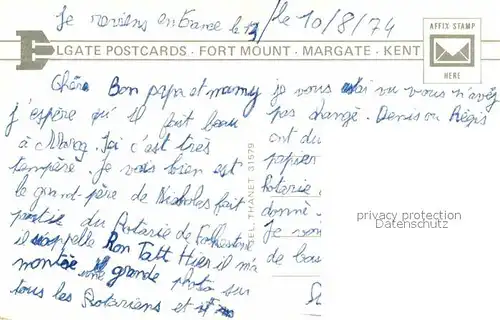 Je reviens en France le 13/
le 10/8/74
ELGATE POSTCARDS · FORT MOUNT · MARGATE · KENT
AFFIX STAMP
HERE
Chère Bon papa et mamy
j'espère qu'il fait beau
à Marcq. Ici c'est tres
tempère. Je vais bien et
le grand-père de Nicholas fait
partie du Rotarie de Folkestone
il s'appelle Ron Tatt Hier il m'a
montré une grande photo sur
tous les Rotariens et
je vous ai vu vous n'avez
pas changé. Denis ou Régis
ont du
papier
Rotarie
donné
Je
de
TEL. THANET 31579
privacy protection
Datenschutz